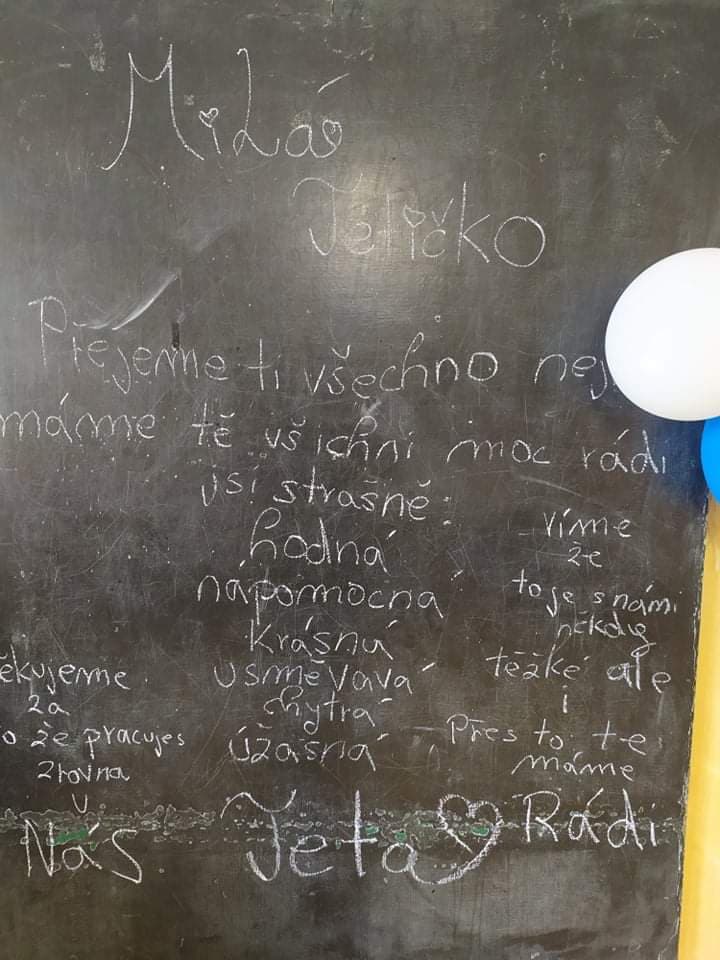 Milá
Tetičko
Přejeme ti všechno nej
máme tě všichni moc rádi
jsi strašně:
hodná
nápomocna
krásná
usměvavá
chytrá
úžasná
Teta
ěkujeme
za
o že pracujes
zrovna
u
Nás
víme
že
to je s námi
někdy
těžké ale
i
přes to te
máme
Rádi